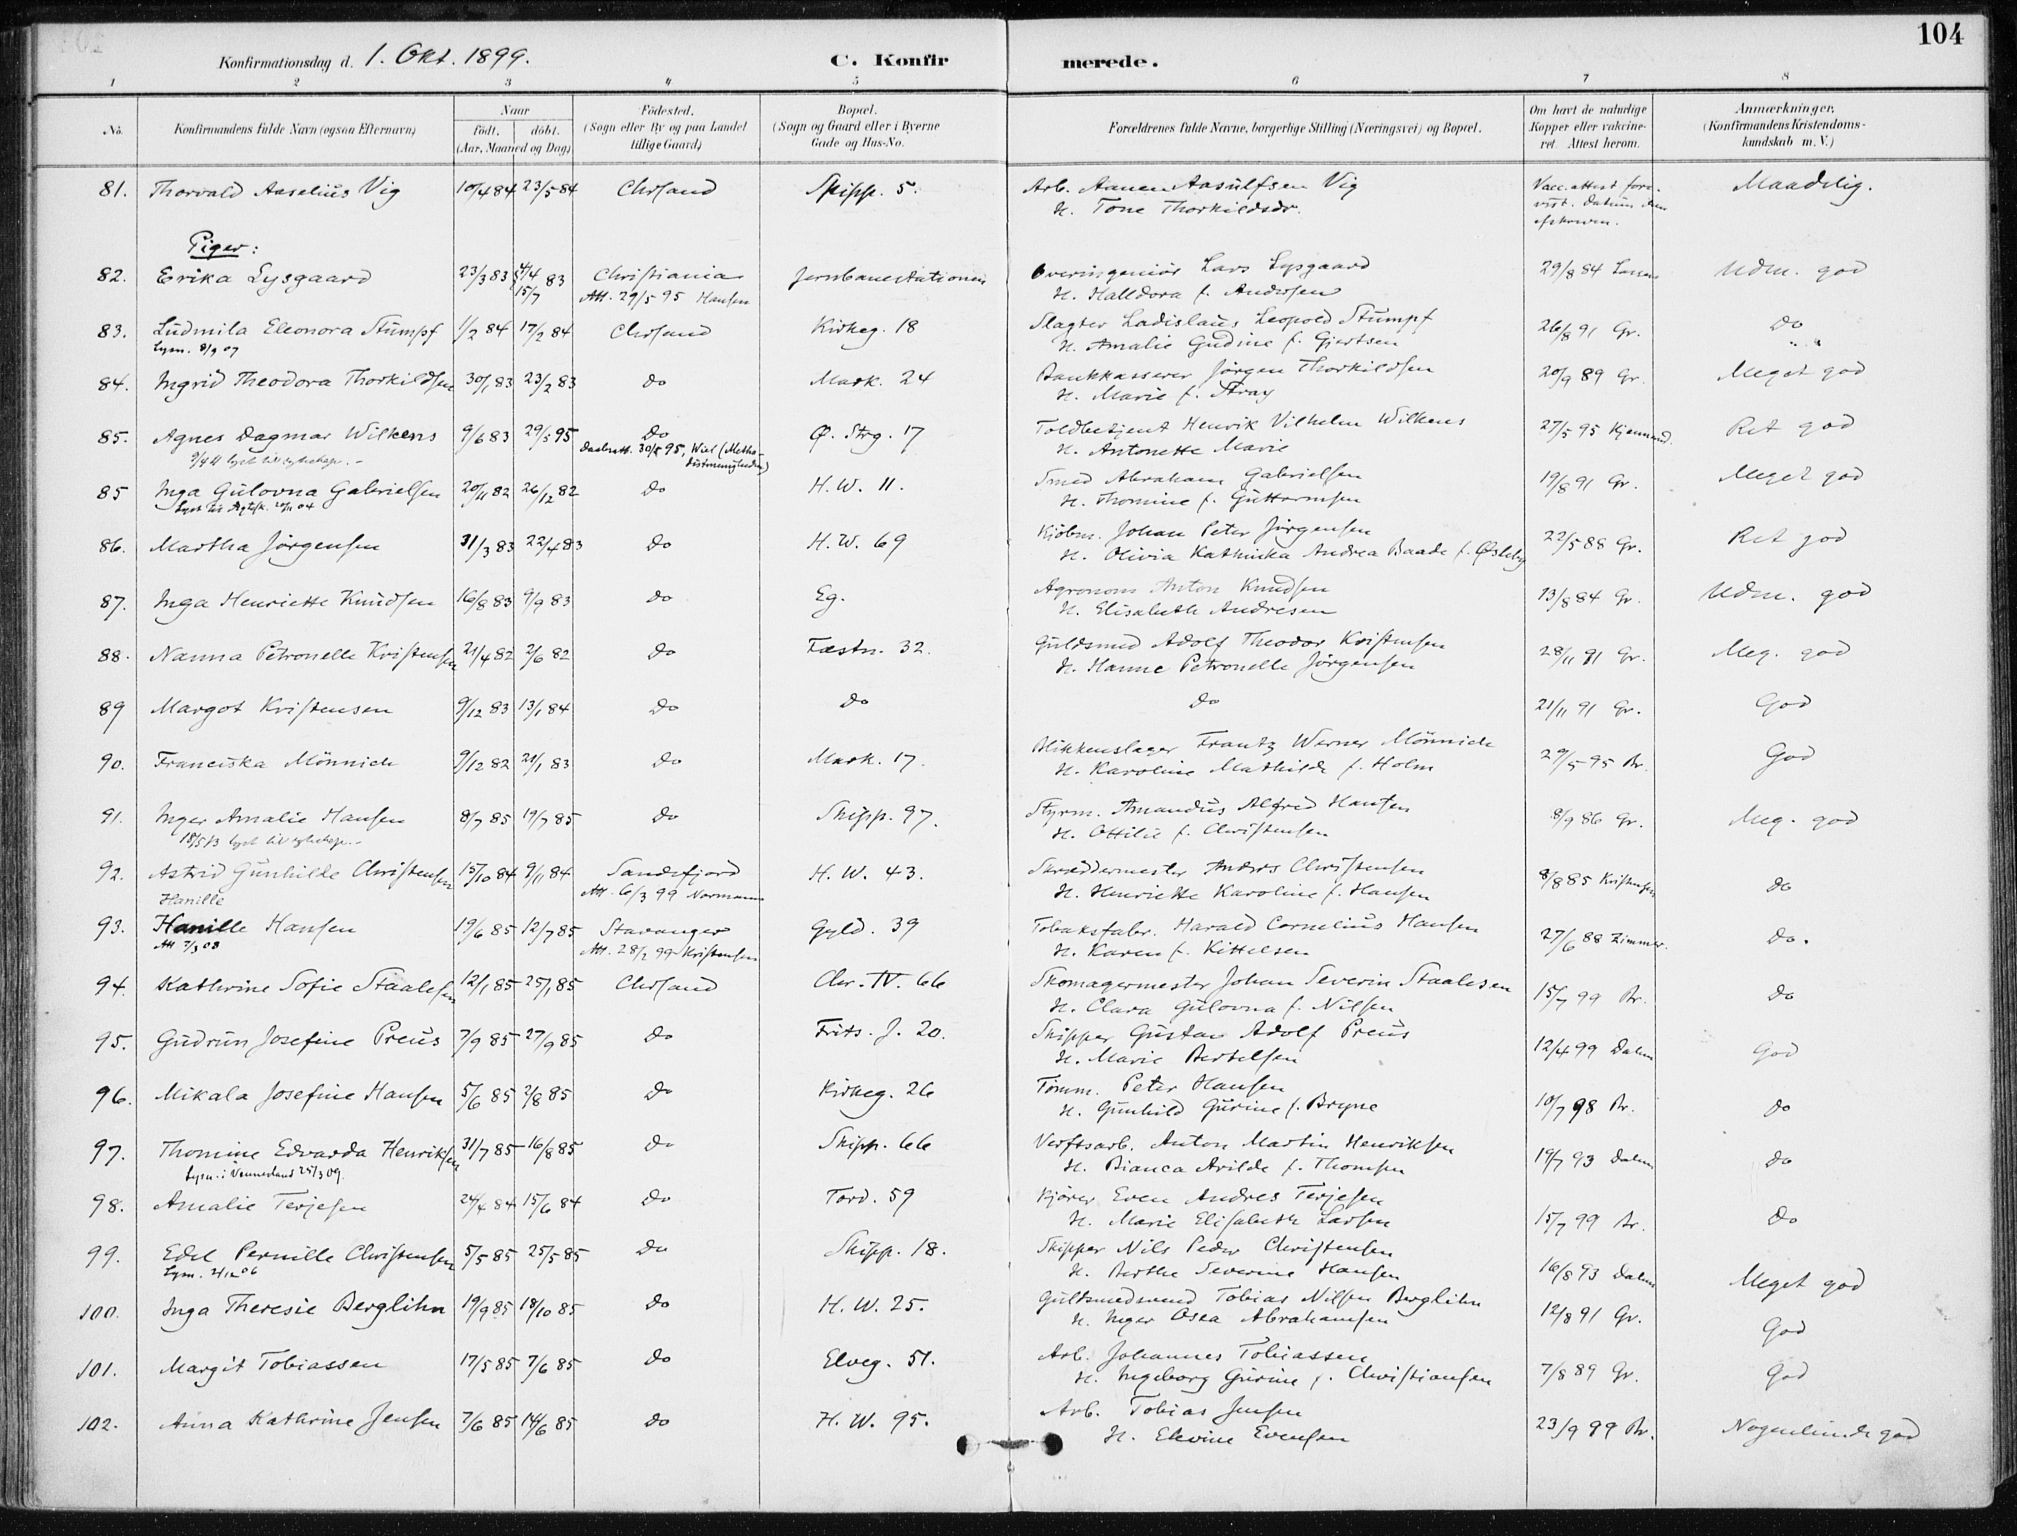 104
Konfirmationsdag d. 1. Okt. 1899.
C. Konfirmerede.
1 2 3 4 5 6 7 8
No. Konfirmandens fulde Navn (ogsaa Efternavn) Naar født. døbt. (Aar, Maaned og Dag) Fødested. (Sogn eller By og paa Landet tillige Gaard) Bopæl. (Sogn og Gaard eller i Byerne Gade og Hus-No. Forældrenes fulde Navne, borgerlige Stilling (Næringsvei) og Bopæl. Om havt de naturlige Kopper eller vakcineret. Attest herom. Anmærkninger. (Konfirmandens Kristendomskundskab m. V.)
81. Thorvald Aaselius Vig 10/4 84 23/5 84 Chrsand Skipp. 5. Arb. Aanen Aasulfsen Vig Vacc. attest fore- Maadelig.
H. Tone Thorkildsdr. vist. Datum
Piger:
82. Erika Lysgaard 23/3 83 4/4 83 Christiania Jernbanestationen Overingeniør Lars Lysgaard 29/8 84 Udm. god
15/7 Att. 29/5 95 Hansen H. Halldora f. Andersen
83. Ludmila Eleonora Stumpf 1/2 84 17/2 84 Chrsand Kirkeg. 18 Slagter Ladislaus Leopold Stumpf 26/8 91 Gr. Do
Lysn. 8/9 07 H. Amalie Gudine f. Gjertsen
84. Ingrid Theodora Thorkildsen 30/1 83 23/2 83 Do Mark. 24 Bankkasserer Jørgen Thorkildsen 20/9 89 Gr. Meget god
H. Marie f. Stray
85. Agnes Dagmar Wilkens 9/6 83 29/5 95 Do Ø. Strg. 17 Toldbetjent Henrik Vilhelm Wilkens 27/5 95 Ret god
Daabsatt. 30/5 95, Wiel (Methodistmenigheden) H. Antonette Marie
85 Inga Gulovna Gabrielsen 20/11 82 26/12 82 Do H. W. 11. Smed Abraham Gabrielsen 19/8 91 Gr. Meget god
H. Thomine f. Guttormsen
86. Martha Jørgensen 31/3 83 22/4 83 Do H. W. 69 Kjøbm. Johan Peter Jørgensen 22/5 88 Gr. Ret god
H. Olivia Kathinka Andrea Baade f. Østeby
87. Inga Henriette Knudsen 16/8 83 9/9 83 Do Eg. Agronom Anton Knudsen 13/8 84 Gr. Udm. god
H. Elisabeth Andresen
88. Nanna Petronelle Kristensen 21/4 82 2/6 82 Do Fæstn. 32. Guldsmed Adolf Theodor Kristensen 28/11 91 Gr. Meg. god
H. Hanne Petronelle Jørgensen
89 Margot Kristensen 9/12 83 13/1 84 Do Do Do 21/11 91 Gr. God
90. Franciska Mönnich 9/12 82 21/1 83 Do Mark. 17. Blikkenslager Frantz Werner Mönnich 29/5 95 Br. God
H. Karoline Mathilde f. Holm
91. Inger Amalie Hansen 8/7 85 19/7 85 Do Skipp. 97. Styrm. Amandus Alfred Hansen 8/9 86 Gr. Meg. god
H. Ottilie f. Christensen
92. Astrid Gunhilde Christensen 15/10 84 9/11 84 Sandefjord H. W. 43. Skræddermester Anders Christensen 8/8 85 Kristensen do
Hanille Att. 6/3 99 Normann H. Henriette Karoline f. Hansen
93. Hanille Hansen 19/6 85 12/7 85 Stavanger Gyld. 39 Tobaksfabr. Harald Cornelius Hansen 27/6 88 Zimmer. do.
Att 7/3 08 Att. 28/2 99 Kristensen H. Karen f. Kittelsen
94. Kathrine Sofie Staalesen 12/1 85 25/1 85 Chrsand Chr. IV. 66 Skomagermester Johan Severin Staalesen 15/7 99 Br. do
H. Clara Gulovna f. Nilsen
95. Gudrun Josefine Preus 7/9 85 27/9 85 Do Frits. J. 20. Skipper Gustav Adolf Preus 12/4 99 Dalen God
H. Marie Bertelsen
96. Mikala Josefine Hansen 5/6 85 2/8 85 Do Kirkeg. 26 Tömm. Peter Hansen 10/7 98 Br. do
H. Gunhild Gurine f. Bryne
97. Thomine Edvarda Henriksen 31/7 85 16/8 85 Do Skipp. 66 Verftsarb. Anton Martin Henriksen 19/7 93 Dalen do
Lysn. i Vennesland 25/3 09. H. Bianca Arilde f. Thomsen
98. Amalie Terjesen 24/4 84 15/6 84 Do Tord. 59 Kjører Even Andres Terjesen 15/7 99 Br. do
H. Marie Elisabeth Larsen
99. Edel Pernille Christensen 5/5 85 25/5 85 Do Skipp. 18. Skipper Nils Peder Christensen 16/8 93 Dalen Meget god
Lysn. 2/12 06 H. Berthe Severine Hansen
100. Inga Theresie Berglihn 19/9 85 18/10 85 Do H. W. 25. Guldsmedsvend Tobias Nilsen Berglihn 12/8 91 Gr. God
H. Inger Osea Abrahamsen
101. Margit Tobiassen 17/5 85 7/6 85 Do Elveg. 51. Arb. Johannes Tobiassen 7/8 89 Gr. God
H. Ingeborg Gurine f. Christiansen
102. Anna Kathrine Jensen 7/6 85 14/6 85 Do H. W. 95. Arb. Tobias Jensen 23/9 99 Br. Nogenlunde god
H. Elevine Evensen